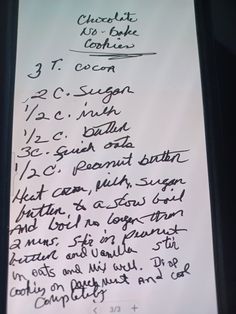 Chocolate
No-Bake
Cookies
3 T. cocoa
2 C. Sugar
1/2 C. milk
1/2 C. butter
3C. Quick oats
1/2 C. Peanut butter
Heat cocoa, milk, sugar
butter, to a slow boil
And boil no longer than
2 mins. Stir in peanut
butter and vanilla stir
in oats and mix well. Drop
cookies on parchment and cool
Completely
3/3